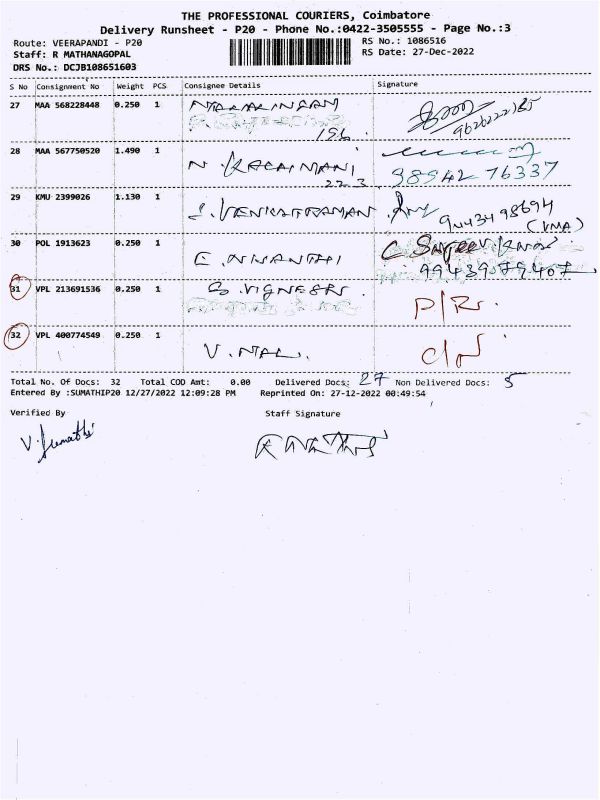 THE PROFESSIONAL COURIERS, Coimbatore
Delivery Runsheet - P20 - Phone No.:0422-3505555 - Page No.:3
Route: VEERAPANDI - P20 RS No.: 1086516
Staff: R MATHANAGOPAL RS Date: 27-Dec-2022
DRS No.: DCJB108651603
S No Consignment No Weight PCS Consignee Details Signature
27 MAA 568228448 0.250 1
28 MAA 567750520 1.490 1 N. KALAIMANI 98942 76337
29 KMU 2399026 1.130 1 J. VENKATRAMAN 9443498694
(VMA)
30 POL 1913623 0.250 1
31 VPL 213691536 0.250 1 P/R.
32 VPL 400774549 0.250 1 V.
Total No. Of Docs: 32 Total COD Amt: 0.00 Delivered Docs: 27 Non Delivered Docs: 5
Entered By :SUMATHIP20 12/27/2022 12:09:28 PM Reprinted On: 27-12-2022 00:49:54
Verified By Staff Signature
V. Sumathi